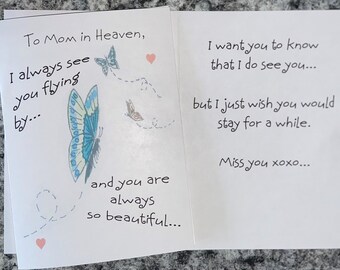 To Mom in Heaven,
I always see
you flying
by...
and you are
always
so beautiful...
I want you to know
that I do see you...
but I just wish you would
stay for a while.
Miss you xoxo...